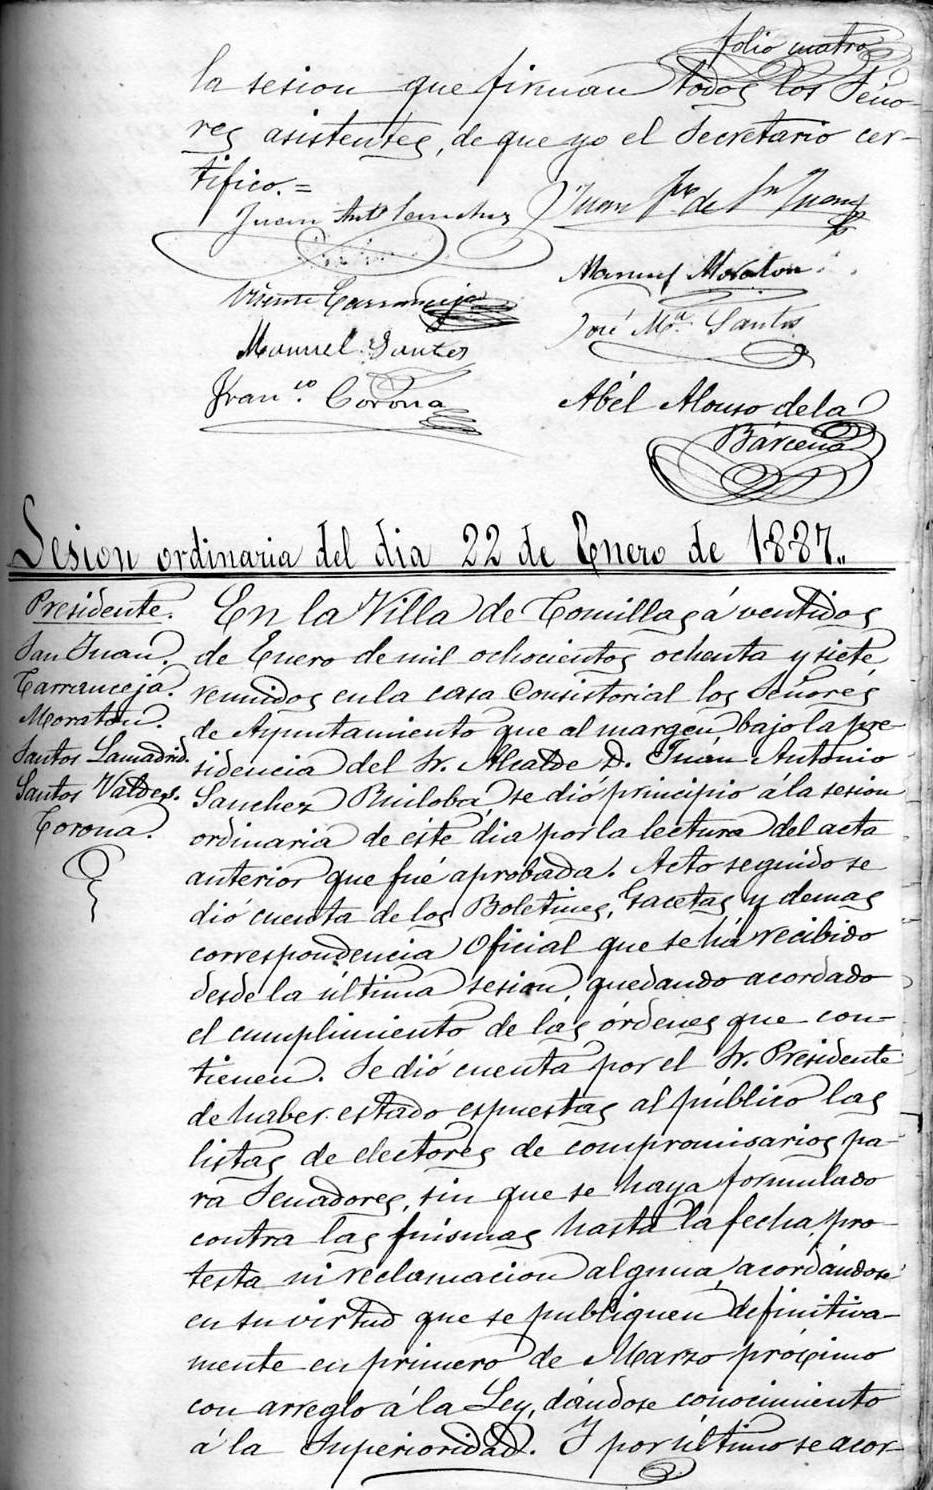 folio cuatro
la sesion que firman todos los Seño-
res asistentes, de que yo el Secretario cer-
tifico.=
Juan Antº Sanchez
Juan de Sn Juan
Manuel Moraton
Vicente Carranceja
José Mª Santos
Manuel Santos
Franco. Corona
Abél Alonso de la
Bárcena
Sesion ordinaria del dia 22 de Enero de 1887..
Presidente.
San Juan.
Carranceja.
Moraton.
Santos Lamadrid.
Santos Valdes.
Corona.
En la Villa de Comillas á ventidos
de Enero de mil ochocientos ochenta y siete
reunidos en la casa Consistorial los Señores
de Ayuntamiento que al margen bajo la pre-
sidencia del Sr. Alcalde D. Juan Antonio
Sanchez Ruiloba, se dió principio á la sesion
ordinaria de este dia por la lectura del acta
anterior que fué aprobada. Acto seguido se
dió cuenta de los Boletines, Gacetas y demas
correspondencia Oficial que se há recibido
desde la última sesion, quedando acordado
el cumplimiento de las órdenes que con-
tienen. Se dió cuenta por el Sr. Presidente
de haber estado espuestas al público las
listas de electores de compromisarios pa-
ra Senadores, sin que se haya formulado
contra las mismas hasta la fecha pro-
testa ni reclamacion alguna, acordándose
en su virtud que se publiquen definitiva-
mente en primero de Marzo próximo
con arreglo á la Ley, dándose conocimiento
á la Superioridad. Y por último se acor-